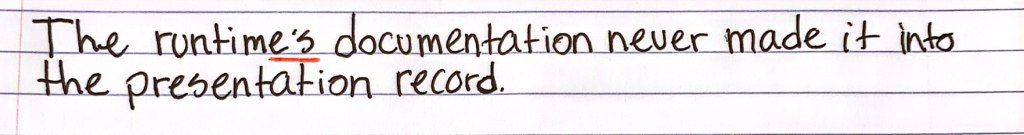 The runtime's documentation never made it into
the presentation record.